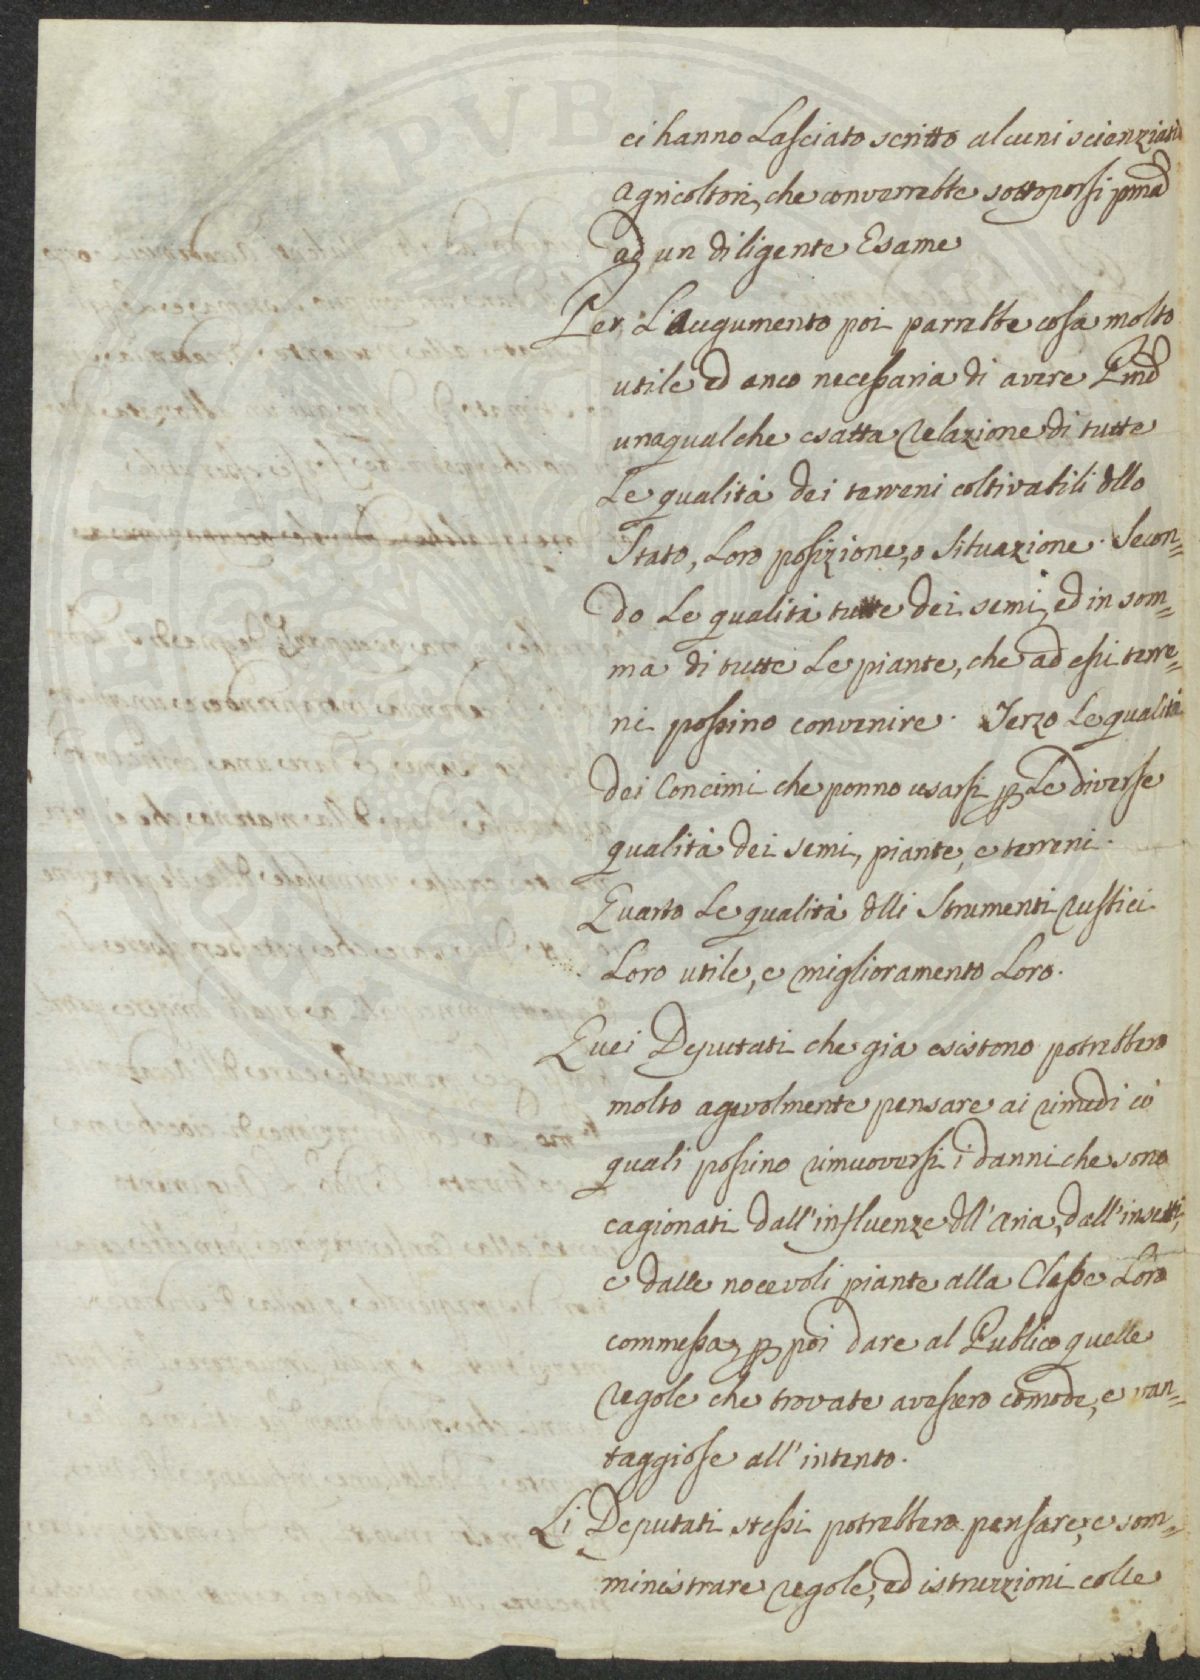 ci hanno Lasciato scritto alcuni scienziati
agricoltori, che converrebbe sottoporsi pma
ad un diligente Esame
Per L'Augumento poi parrebbe cosa molto
utile ed anco necessaria di avere Pmo
una qualche esatta relazione di tutte
Le qualità dei terreni coltivabili dllo
Stato, Loro posizione, o Situazione. Secon=
do Le qualità tutte dei semi, ed in som=
ma di tutte Le piante, che ad essi terre=
ni possino convenire. Terzo Le qualità
dei Concimi che ponno usarsi p Le diverse
qualità dei semi, piante, e terreni.
Quarto Le qualità dlli Strumenti rustici
Loro utile, e miglioramento Loro.
Quei Deputati che già esistono potrebbero
molto agevolmente pensare ai rimedi co'
quali possino rimuoversi i danni che sono
cagionati dall'influenze dll'aria, dall'insetti,
e dalle nocevoli piante alla Classe Loro
commessa, p poi dare al Publico quelle
regole che trovate avessero comode, e van=
taggiose all'intento.
Li Deputati stessi potrebbero pensare, e som=
ministrare regole, ed istruzzioni colle